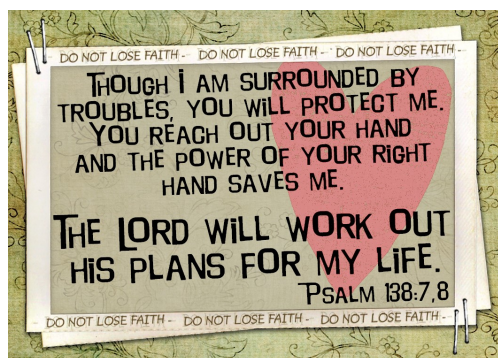 DO NOT LOSE FAITH - DO NOT LOSE FAITH - DO NOT LOSE FAITH -
THOUGH I AM SURROUNDED BY
TROUBLES, YOU WILL PROTECT ME.
YOU REACH OUT YOUR HAND
AND THE POWER OF YOUR RIGHT
HAND SAVES ME.
THE LORD WILL WORK OUT
HIS PLANS FOR MY LIFE.
PSALM 138:7,8
DO NOT LOSE FAITH - DO NOT LOSE FAITH - DO NOT LOSE FAITH -